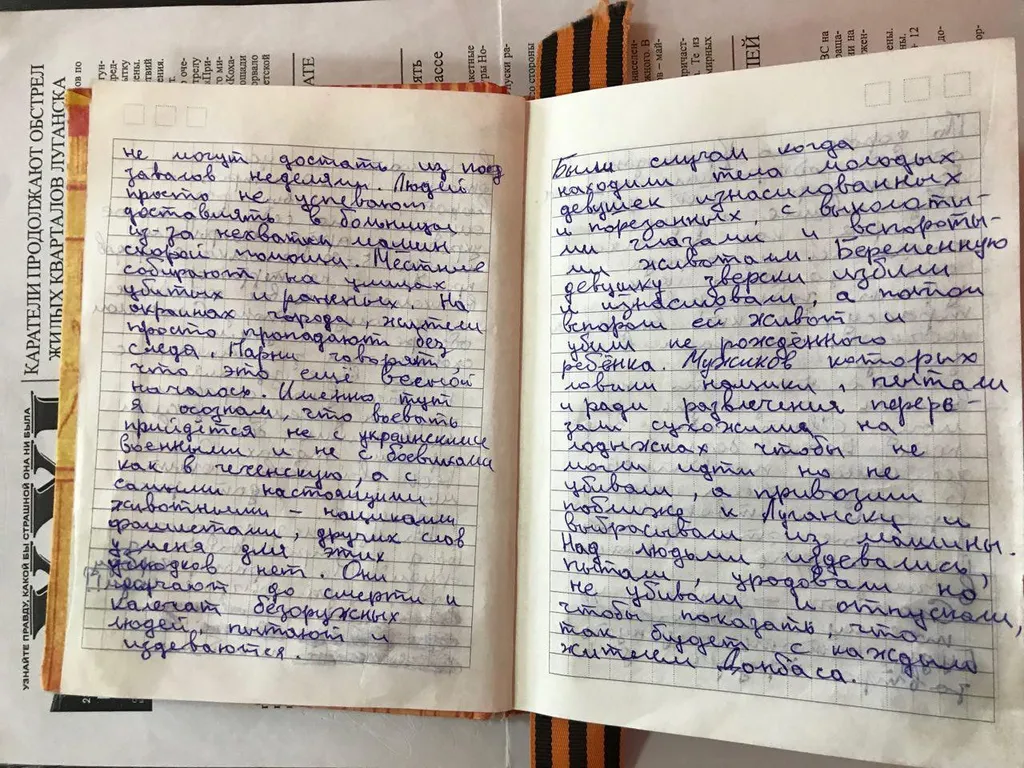 КАРАТЕЛИ ПРОДОЛЖАЮТ ОБСТРЕЛ
ЖИЛЫХ КВАРТАЛОВ ЛУГАНСКА
УЗНАЙТЕ ПРАВДУ, КАКОЙ БЫ СТРАШНОЙ ОНА НИ БЫЛА
не могут достать из под
завалов неделями. Людей
просто не успевают
доставлять в больницы
из-за нехватки машин
скорой помощи. Местные
собирают на улицах
убитых и раненых. На
окраинах города, жители
просто пропадают без
следа. Парни говорят,
что это ещё весной
началось. Именно тут
я осознал, что воевать
прийдётся не с украинскими
военными и не с боевиками
как в чеченскую, а с
самыми настоящими
животными – нациками
фашистами, других слов
у меня для этих
ублюдков нет. Они
до смерти и
калечат безоружных
людей, пытают и
издеваются.
Были случаи когда
находили тела молодых
девушек изнасилованных
и порезанных, с выколоты-
ми глазами и вспороты-
ми животами. Беременную
девушку зверски избили
и изнасиловали, а потом
вспороли ей живот и
убили не рождённого
ребёнка. Мужиков которых
ловили нацики, пытали
и ради развлечения перере-
зали сухожилия на
лодыжках чтобы не
могли идти но не
убивали, а привозили
поближе к Луганску и
выбрасывали из машины.
Над людьми издевались,
пытали, уродовали но
не убивали и отпускали,
чтобы показать, что
так будет с каждым
жителем Донбаса.